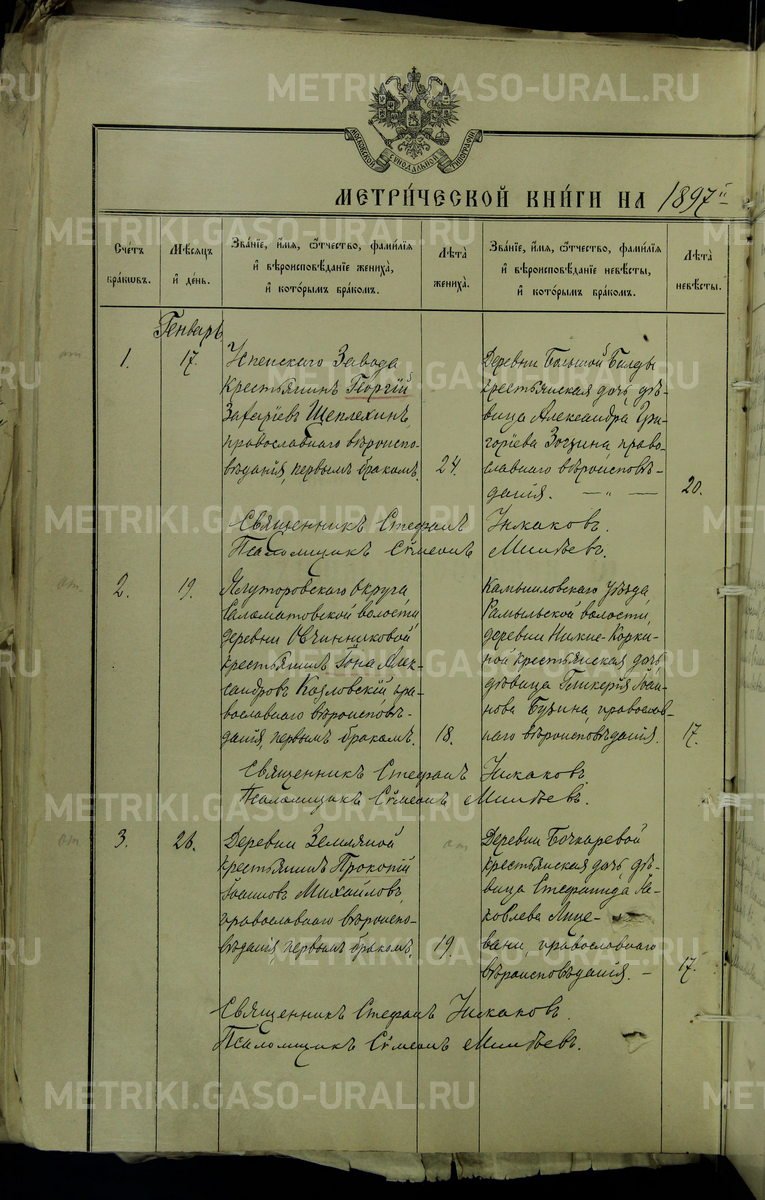 METRIKI.GASO-URAL.RU
МОСКОВСКОЙ СѴНОДАЛЬНОЙ ТИПОГРАФІИ
МЕТРИ́ЧЕСКОЙ КНИ́ГИ НА 1897й
Счетъ браковъ.
Мѣсяцъ и день.
Зва́нiе, и́мя, ѻ҆́тчество, фами́лїя и вѣроисповѣ́данїе жениха̀, и кото́рымъ бра́комъ.
Лѣта̀ жениха̀.
Зва́нiе, и́мя, ѻ҆́тчество, фами́лїя и вѣроисповѣ́данїе невѣ́сты, и кото́рымъ бра́комъ.
Лѣта̀ невѣ́сты.
Генварь
1.
17.
Успенскаго Завода
крестьянинъ Георгій
Захаріевъ Щеплехинъ,
православнаго вѣроиспо-
вѣданія, первымъ бракомъ.
24.
Деревни Большой
крестьянская дочь, дѣ-
вица Александра Гри-
горіева право-
славнаго вѣроисповѣ-
данія. — „ —
20.
Священникъ Стефанъ
Псаломщикъ Сѵмеонъ
2.
19.
Ялуторовскаго округа
Саламатовской волости
деревни Овчинниковой
крестьянинъ Іона Алек-
сандровъ Козловскій пра-
вославнаго вѣроисповѣ-
данія, первымъ бракомъ.
18.
Камышловскаго уѣзда
волости,
деревни Нижне-Корки-
ной крестьянская дочь,
дѣвица Гликерія Іоан-
нова православ-
наго вѣроисповѣданія.
17.
Священникъ Стефанъ
Псаломщикъ Сѵмеонъ
3.
26.
Деревни Земляной
крестьянинъ Прокопій
Іоанновъ Михайловъ,
православнаго вѣроиспо-
вѣданія, первымъ бракомъ.
19.
Деревни Бочкаревой
крестьянская дочь дѣ-
вица Стефанида Іа-
ковлева
православнаго
вѣроисповѣданія. —
17.
Священникъ Стефанъ
Псаломщикъ Сѵмеонъ